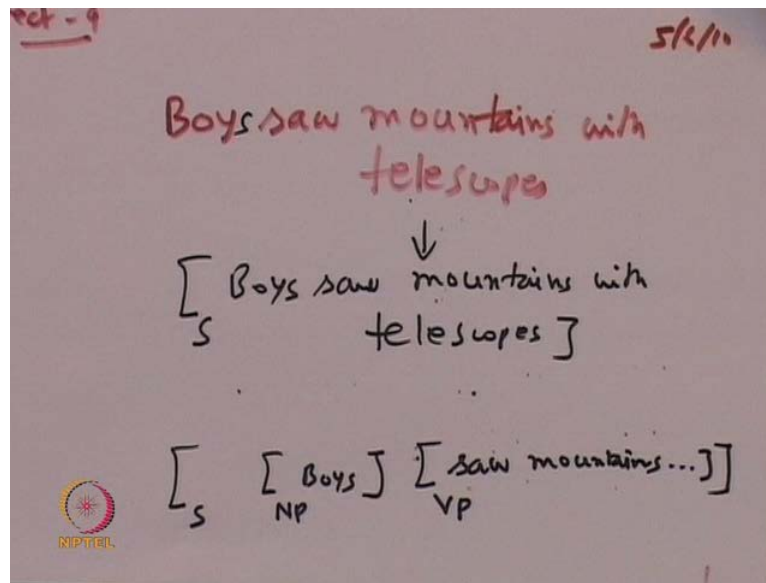 ect - 9
5/2/10
Boys saw mountains with
telescopes
↓
[ Boys saw mountains with
S telescopes ]
[ [ Boys ] [ saw mountains...]]
S NP VP
NPTEL